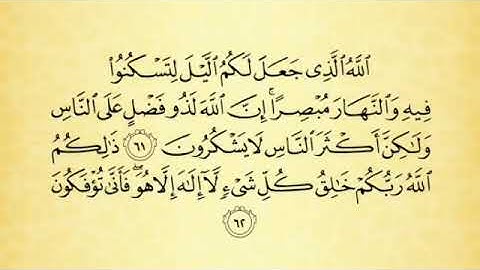 ٱللَّهُ ٱلَّذِى جَعَلَ لَكُمُ ٱلَّيْلَ لِتَسْكُنُوا۟
فِيهِ وَٱلنَّهَارَ مُبْصِرًا ۚ إِنَّ ٱللَّهَ لَذُو فَضْلٍ عَلَى ٱلنَّاسِ
وَلَٰكِنَّ أَكْثَرَ ٱلنَّاسِ لَا يَشْكُرُونَ ٦١ ذَٰلِكُمُ
ٱللَّهُ رَبُّكُمْ خَٰلِقُ كُلِّ شَىْءٍ لَّآ إِلَٰهَ إِلَّا هُوَ ۖ فَأَنَّىٰ تُؤْفَكُونَ
٦٢